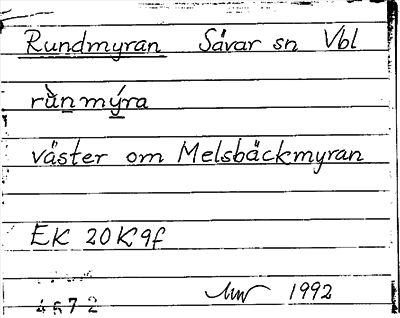 Rundmyran Sävar sn Vbl
rùn mýra
väster om Melsbäckmyran
EK 20K9f
1992
4672